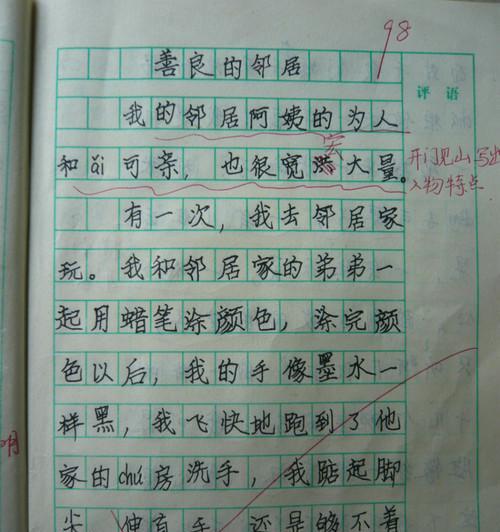 98
善良的邻居
评语
我的邻居阿姨的为人
和ǎi可亲，也很宽
宏
大量。
开门见山写出
人物特点
有一次，我去邻居家
玩。我和邻居家的弟弟一
起用蜡笔涂颜色，涂完颜
色以后，我的手像墨水一
样黑，我飞快地跑到了他
家的chú房洗手，我踮起脚
尖，伸直手，还是够不着